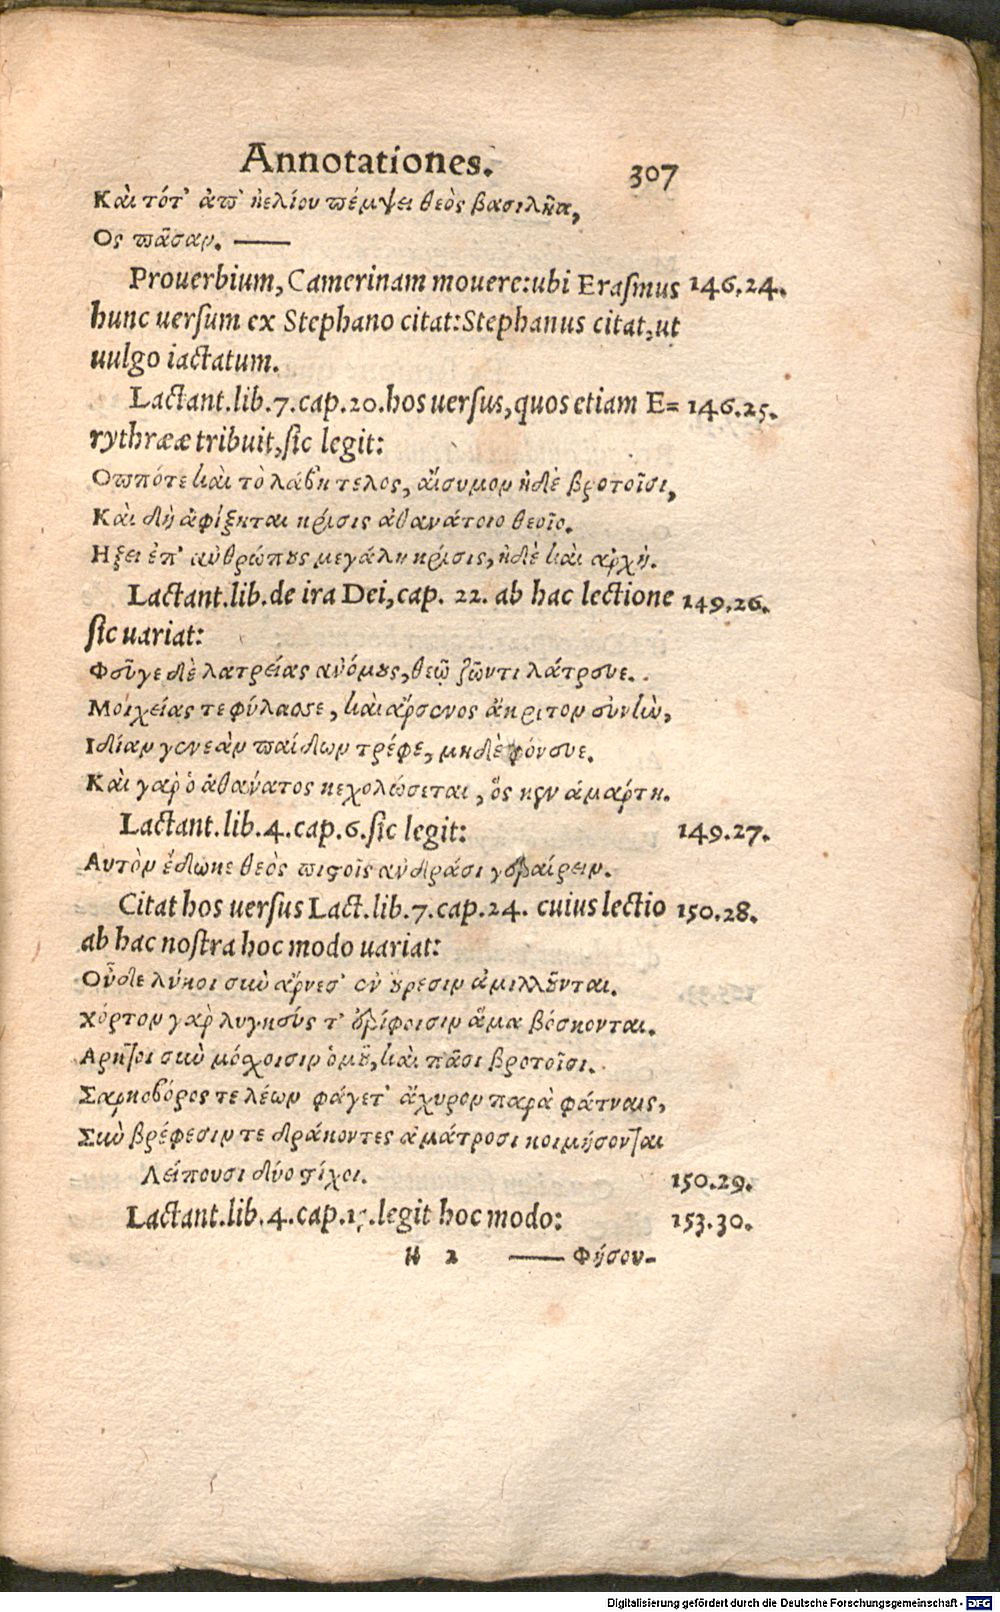 Annotationes. 307
Καὶ τότ' ἀπ' ἠελίου πέμψει θεὸς βασιλῆα,
Ος πᾶσαν. ——
Prouerbium, Camerinam mouere: ubi Erasmus 146.24.
hunc uersum ex Stephano citat: Stephanus citat, ut
uulgo iactatum.
Lactant. lib. 7. cap. 20. hos uersus, quos etiam E= 146.25.
rythrææ tribuit, sic legit:
Οππότε καὶ τὸ λάβῃ τελος, αἴσυμον ἠδὲ βροτοῖσι,
Καὶ δὴ ἀφίξηται κρίσις ἀθανάτοιο θεοῖο.
Ηξει ἐπ' ἀνθρώπους μεγάλη κρίσις, ἠδὲ καὶ ἀρχή.
Lactant. lib. de ira Dei, cap. 22. ab hac lectione 149.26.
sic uariat:
Φεῦγε δὲ λατρείας ἀνόμους, θεῷ ζῶντι λάτρευε.
Μοιχείας τε φύλαοσε, καὶ ἄρσενος ἄκριτον εὐνὴν,
Ιδίαν γενεὰν παίδων τρέφε, μηδὲ φόνευε.
Καὶ γὰρ ὁ ἀθανατος κεχολώσεται, ὅς κεν ἁμάρτη.
Lactant. lib. 4. cap. 6. sic legit: 149.27.
Αυτὸν ἔδωκε θεὸς πιστοῖς ἀνδράσι γεραίρειν.
Citat hos uersus Lact. lib. 7. cap. 24. cuius lectio 150.28.
ab hac nostra hoc modo uariat:
Οὗδε λύκοι σὺν ἄρνεσ' ἐν οὔρεσιν ἁμιλλοῦνται.
Χόρτον γὰρ λυγκεύς τ' ἐρίφοισιν ἅμα βόσκονται.
Αρκτοι σὺν μόσχοισιν ὁμοῦ, καὶ πᾶσι βροτοῖσι.
Σαρκοβόρος τε λέων φάγετ' ἄχυρον παρὰ φάτναις,
Σὺν βρέφεσιν τε δράκοντες ἀμάτροσι κοιμήσονται
Λείπουσι δύο στίχοι. 150.29.
Lactant. lib. 4. cap. 15. legit hoc modo: 153.30.
2 —— Φήσου-
Digitalisierung gefördert durch die Deutsche Forschungsgemeinschaft - DFG